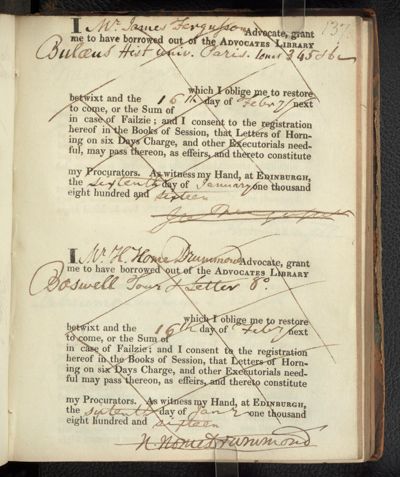 I Mr James Ferguson Advocate, grant
me to have borrowed out of the ADVOCATES LIBRARY
Bulæus Hist univ. Paris. tomes 3 4 5 &
which I oblige me to restore
betwixt and the 16th day of Febry next
to come, or the Sum of
in case of Failzie; and I consent to the registration
hereof in the Books of Session, that Letters of Horn-
ing on six Days Charge, and other Executorials need-
ful, may pass thereon, as effeirs, and thereto constitute
my Procurators. As witness my Hand, at EDINBURGH,
the sixtenth day of January one thousand
eight hundred and sixteen
I Mr H. Home Drummond Advocate, grant
me to have borrowed out of the ADVOCATES LIBRARY
Boswell Tour & Letter 8o
which I oblige me to restore
betwixt and the 16th day of Febry next
to come, or the Sum of
in case of Failzie; and I consent to the registration
hereof in the Books of Session, that Letters of Horn-
ing on six Days Charge, and other Executorials need-
ful may pass thereon, as effeirs, and thereto constitute
my Procurators. As witness my Hand, at EDINBURGH,
the sixtenth day of Jany one thousand
eight hundred and sixteen
H. Home Drummond